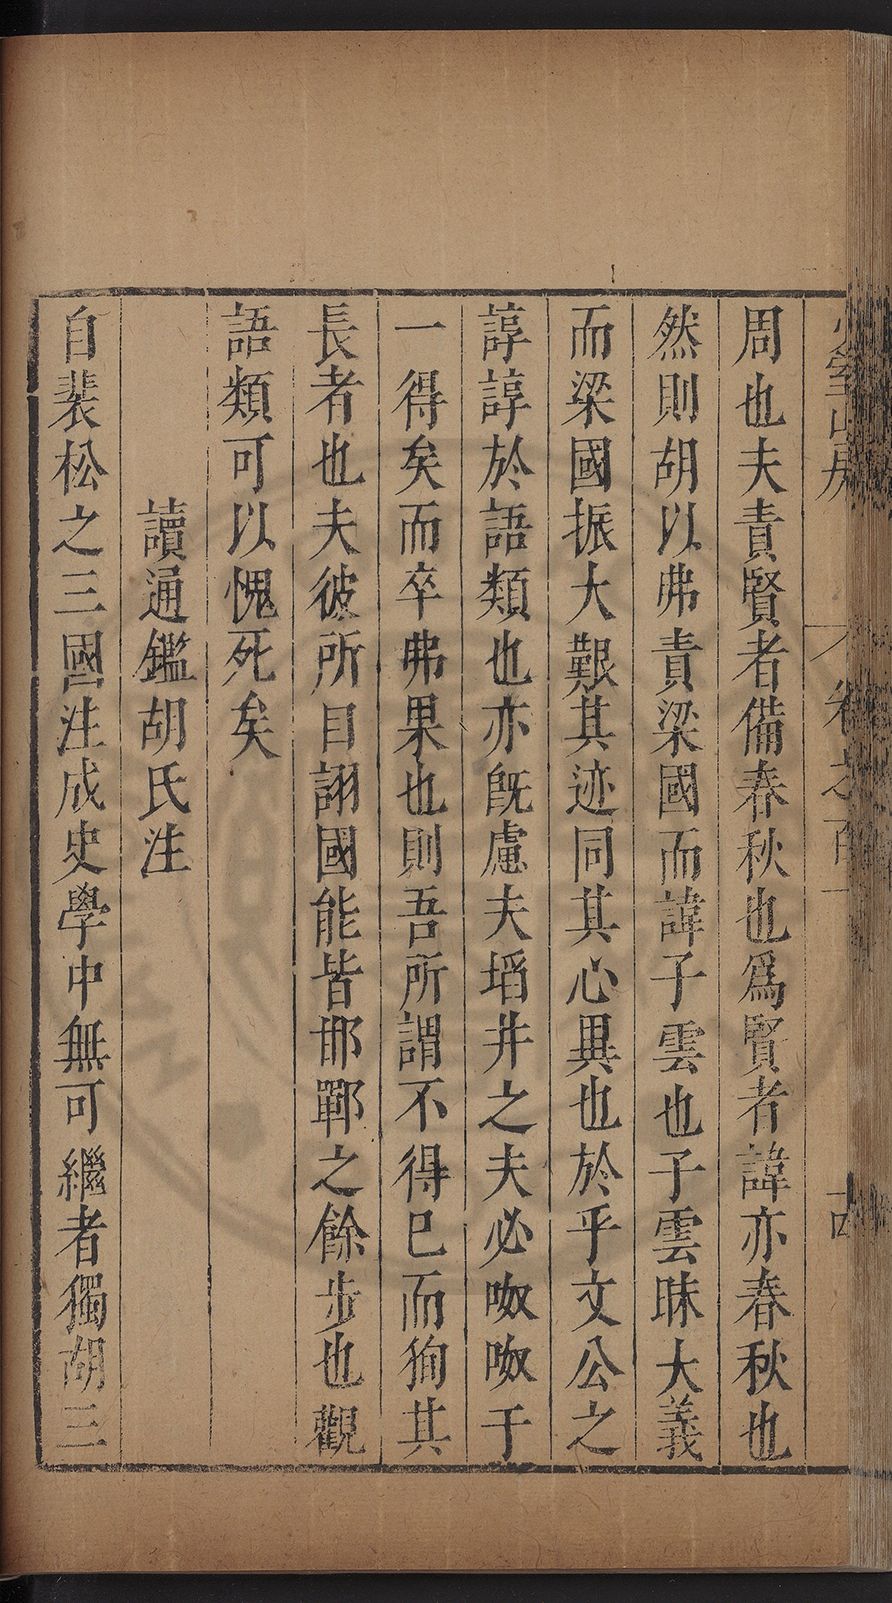 周也夫責賢者備春秋也爲賢者諱亦春秋也
然則胡以弗責梁國而諱子雲也子雲昧大義
而梁國振大艱其迹同其心異也於乎文公之
諄諄於語類也亦旣慮夫壔井之夫必呶呶于
一得矣而卒弗果也則吾所謂不得已而狥其
長者也夫彼所目詡國能皆邯鄲之餘步也觀
語類可以愧死矣
讀通鑑胡氏注
自裴松之三國注成史學中無可繼者獨胡三